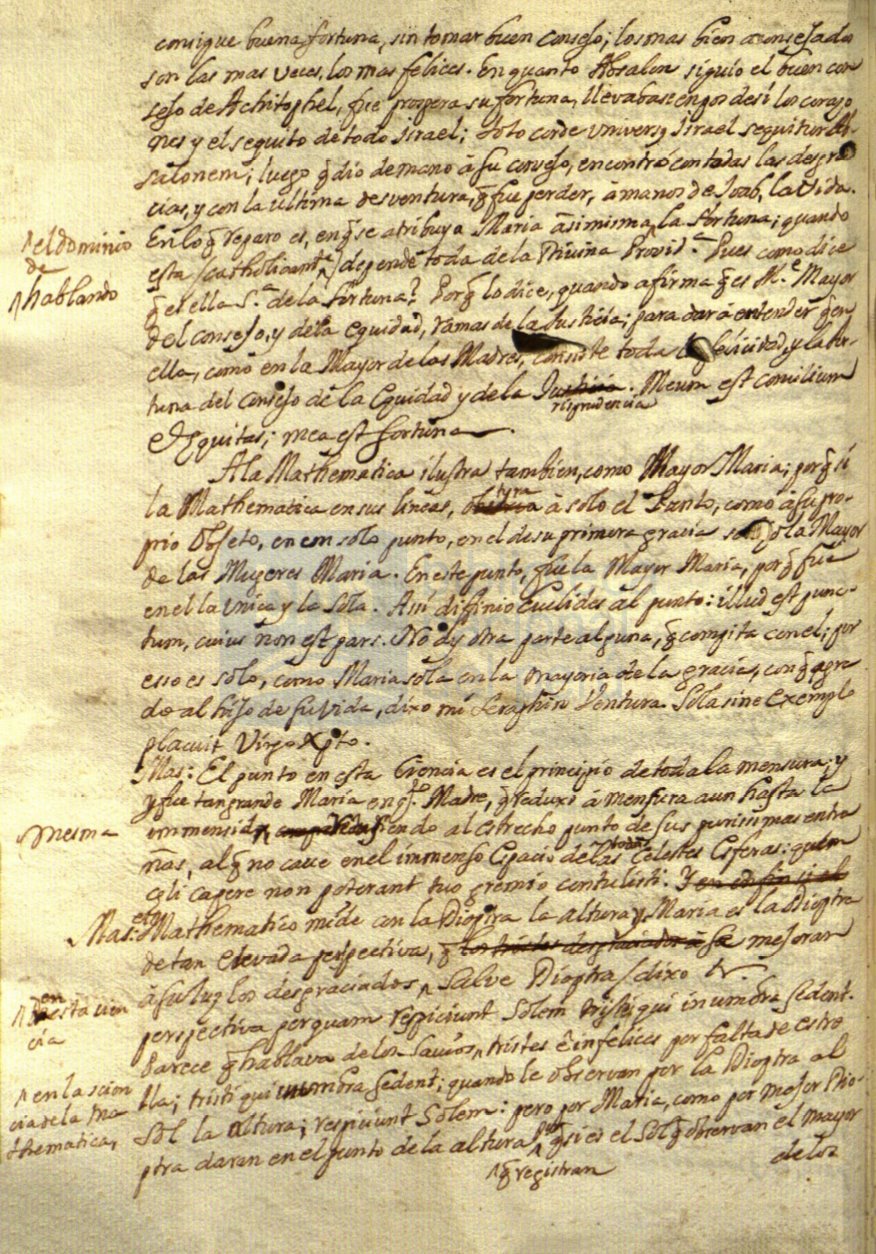 consigue buena fortuna, sin tomar buen consejo; los mas bien aconsejados
son las mas veces, los mas felices. En quanto Absalon siguio el buen con
sejo de Achitophel, fue prospera su fortuna, llevabase en pos de si los coraço
nes y el sequito de todo Israel; toto corde universq Israel sequitur Ab-
salonem; luego q̃ dio de mano à su consejo, encontró con todas las desgra
cias, y con la ultima desventura, q̃ fue perder, à manos de Joab, la vida.
En lo q̃ reparo es, en q̃ se atribuya Maria à si misma ^ la fortuna; quando
^ el dominio
de
esta (catholicamte ^) depende toda de la Divina Provid.a Pues como dice
^ hablando
q̃ es ella S.a de la fortuna? Porq̃ lo dice, quando afirma q̃ es M.e Mayor
del consejo, y de la equidad, ramas de la Justicia; para dar à entender q̃ en
ella, como en la Mayor de las Madres, consiste toda la felicidad, y la for-
tuna del consejo de la Equidad y de la Justicia. Meum est consilium
risprudencia
et Equitas; mea est fortuna.
A la Mathematica ilustra tambien, como Mayor Maria; porq̃ si
la Mathematica en sus lineas, à solo el Punto, como à su pro-
prio Objeto, en un solo punto, en el de su primera gracia solo la Mayor
de las Mugeres Maria. En este punto, fue la Mayor Maria, porq̃ fue
en el la unica y la sola. Assi difinio Euclides al punto: illud est punc-
tum, cuius non est pars. No ay otra parte alguna, q̃ compita con el; por
esso es solo, como Maria sola en la mayoria de la gracia, con q̃ agra
do al hijo de su vida, dixo mi Seraphin Ventura. Sola sine exemplo
placuit Virgo Xpto.
Mas: El punto en esta Ciencia es el principio de toda la mensura; y
y fue tan grande Maria en q.to Madre, q̃ reduxo à mensura aun hasta la
mesma
immensidad ciñendo al estrecho punto de sus purissimas entra
ñas, al q̃ no cave en el immenso Espacio de las todas Celestes Esferas: quem
cęli capere non poterant tuo gremio contulisti. Y en
Mas: el Mathematico mide con la Dioptra la altura y Maria es la Dioptra
de tan elevada perspectiva, q̃ los tristes desgraciados à su mejoran
à su luz los desgraciados ^ Salve Dioptra (dixo
^ en esta cien
cia
perspectiva per quam respiciunt Solem tristes qui in umbra sedent.
Parece q̃ hablava de los Savios ^ tristes è infelices por falta de estre
^ en la scien
cia de la Ma
thematica,
lla; tristi qui in umbra sedent; quando le observan por la Dioptra al
Sol la altura; respiciunt Solem: pero por Maria, como por mejor Dio-
ptra daran en el punto de la altura ^ porq̃ si es el Sol q̃ observan el mayor
^ q̃ registran
de los